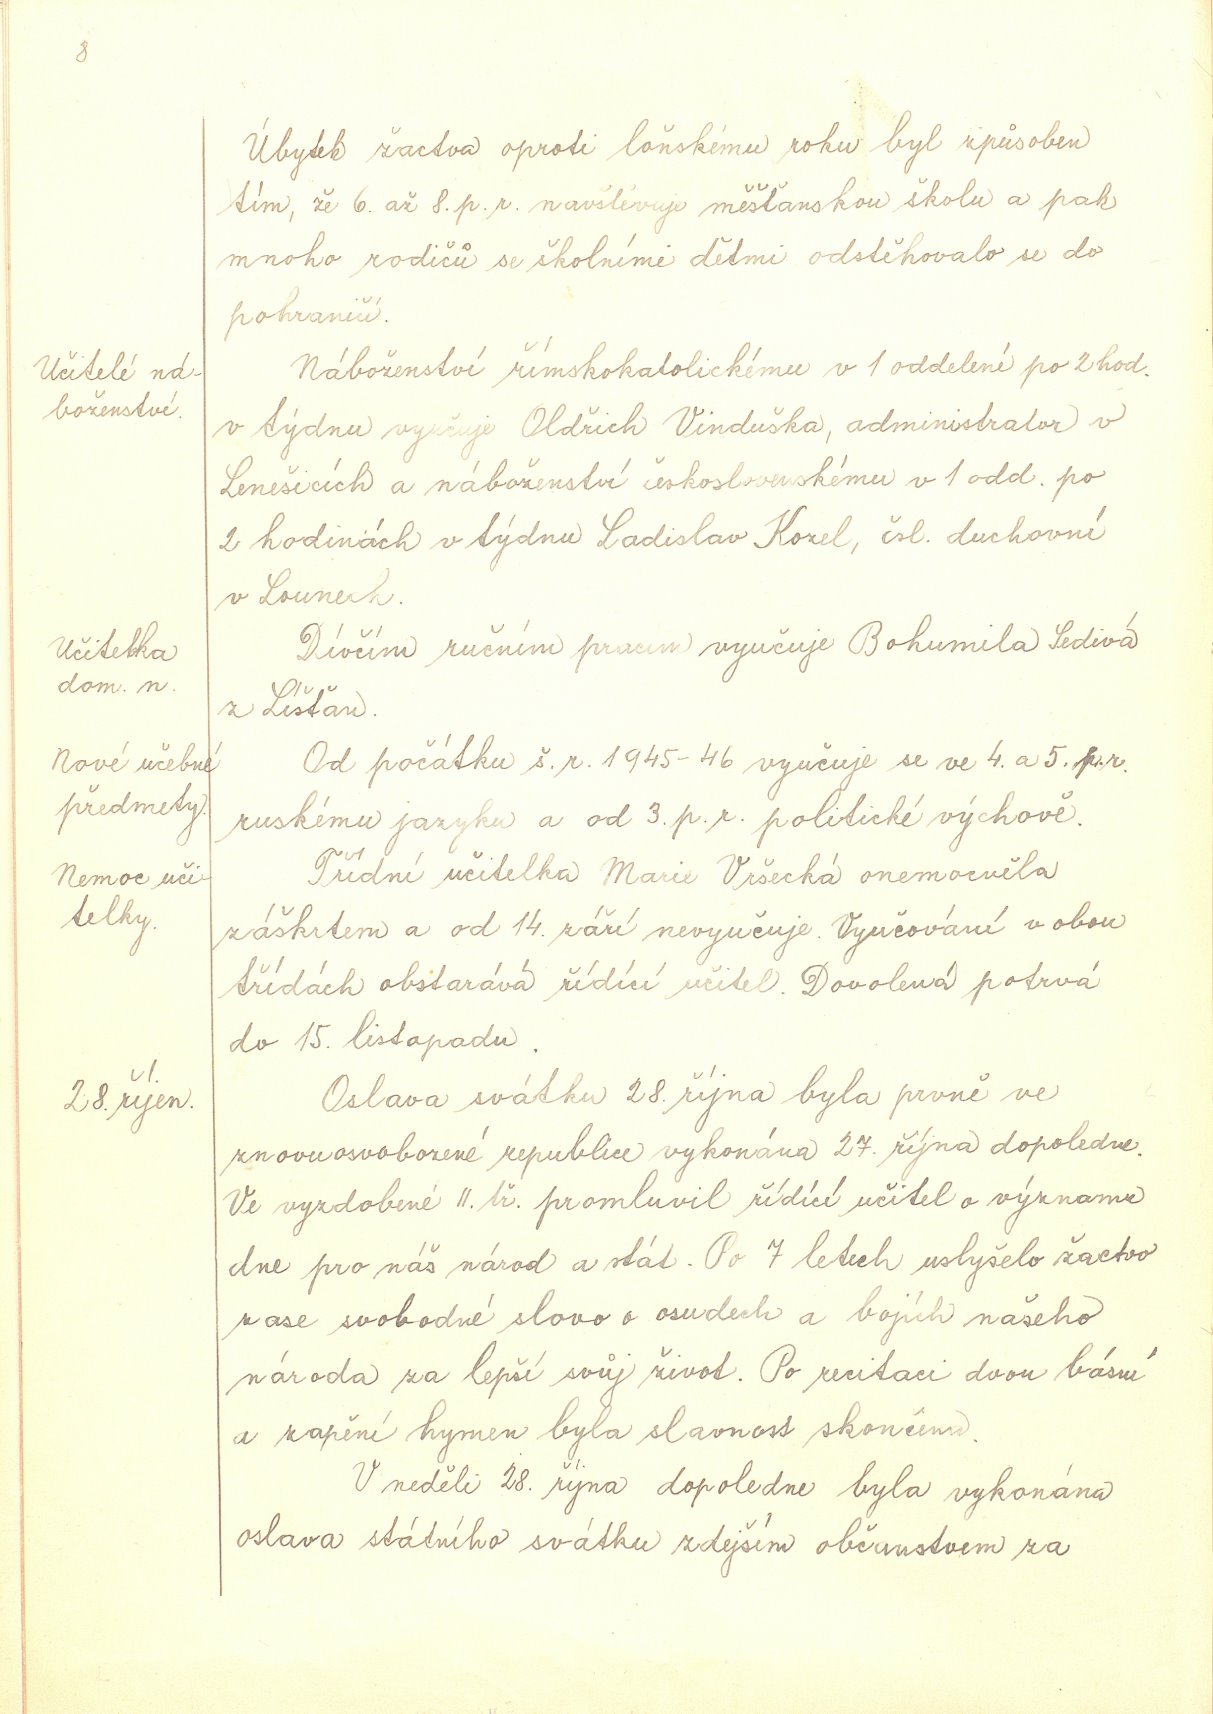 8
Úbytek žactva oproti loňskému roku byl způsoben
tím, že 6. až 8. p. r. navštěvuje měšťanskou školu a pak
mnoho rodičů se školními dětmi odstěhovalo se do
pohraničí.
Učitelé ná-
boženství.
Náboženství římskokatolickému v 1 oddelení po 2 hod.
v týdnu vyučuje Oldřich Vinduška, administrator v
Lenešicích a náboženství československému v 1 odd. po
2 hodinách v týdnu Ladislav Kozel, čsl. duchovní
v Lounech.
Učitelka
dom. n.
Dívčím ručním pracím vyučuje Bohumila Šedivá
z Líšťan.
Nové učebné
předmety.
Od počátku š. r. 1945-46 vyučuje se ve 4. a 5. p. r.
ruskému jazyku a od 3. p. r. politické výchově.
Nemoc uči-
telky.
Třídní učitelka Marie Vršecká onemocněla
záškrtem a od 14. září nevyučuje. Vyučování v obou
třídách obstarává řídící učitel. Dovolená potrvá
do 15. listopadu.
28. říjen.
Oslava svátku 28. října byla prvně ve
znovuosvobozené republice vykonána 27. října dopoledne.
Ve vyzdobené II. tř. promluvil řídící učitel o významu
dne pro náš národ a stát. Po 7 letech uslyšelo žactvo
zase svobodné slovo o osudech a bojích našeho
národa za lepší svůj život. Po recitaci dvou básní
a zapění hymen byla slavnost skončena.
V neděli 28. října dopoledne byla vykonána
oslava státního svátku zdejším občanstvem za